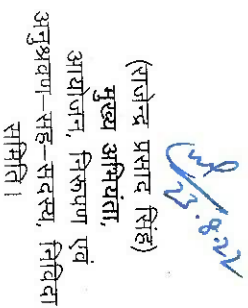 23.8.22
(राजेन्द्र प्रसाद सिंह)
मुख्य अभियंता,
आयोजन, निरूपण एवं
अनुश्रवण–सह–सदस्य, निविदा
समिति।